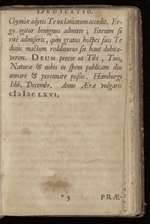 DEDICATIO.
Chymiæ adytis Te nuliantiam accedit. Er-
go igitur benignus admitte; siterum si
rité admiseris, quin gratus hospes suis Te
donis mactum redditurus sit haut dubita-
verim. DEUM precor ut Tibi, Tuis,
Naturæ & nobis in spem publicam diu
annare & perennare possis. Hamburgi
Idib. Decembr. Anno Æræ vulgaris
cIↃ IↃ cLXVI.
*3 PRÆ-